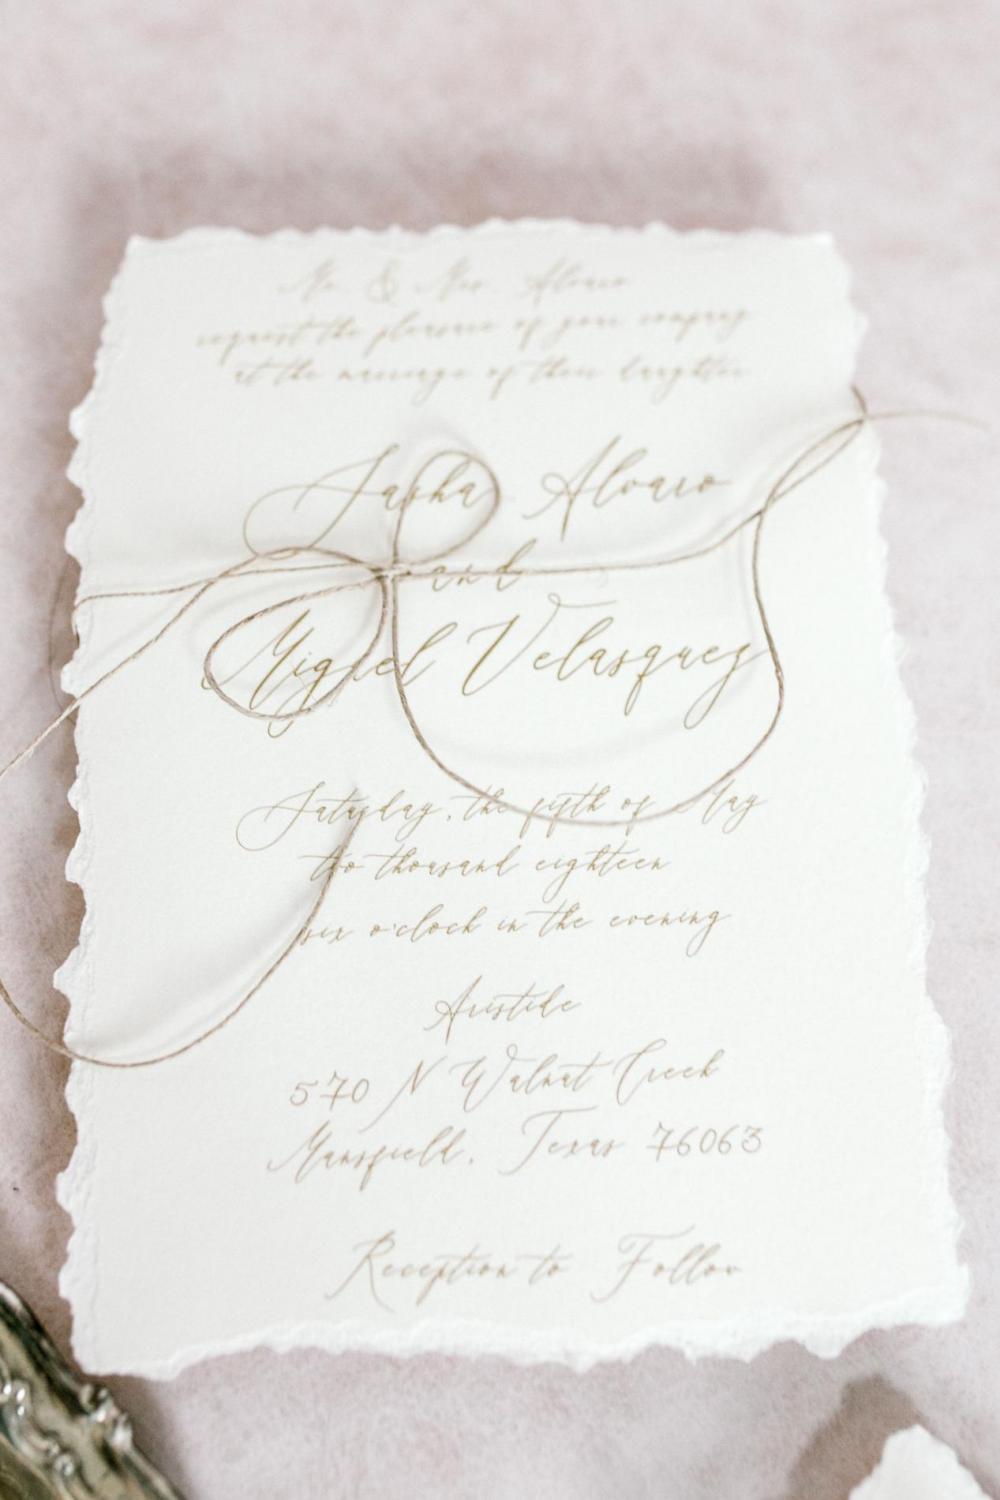 Mr. & Mrs. Alvaro
request the pleasure of your company
at the marriage of their daughter
Sasha Alvaro
and
Miguel Velasquez
Saturday, the fifth of May
two thousand eighteen
six o'clock in the evening
Aristide
570 N Walnut Creek
Mansfield, Texas 76063
Reception to Follow